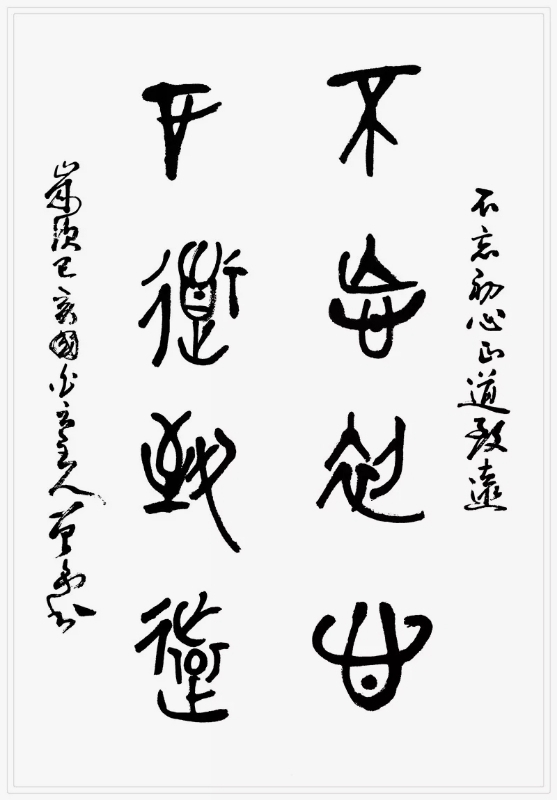 不忘初心正道致遠
不忘初心
正道致遠
歲己亥國主人書